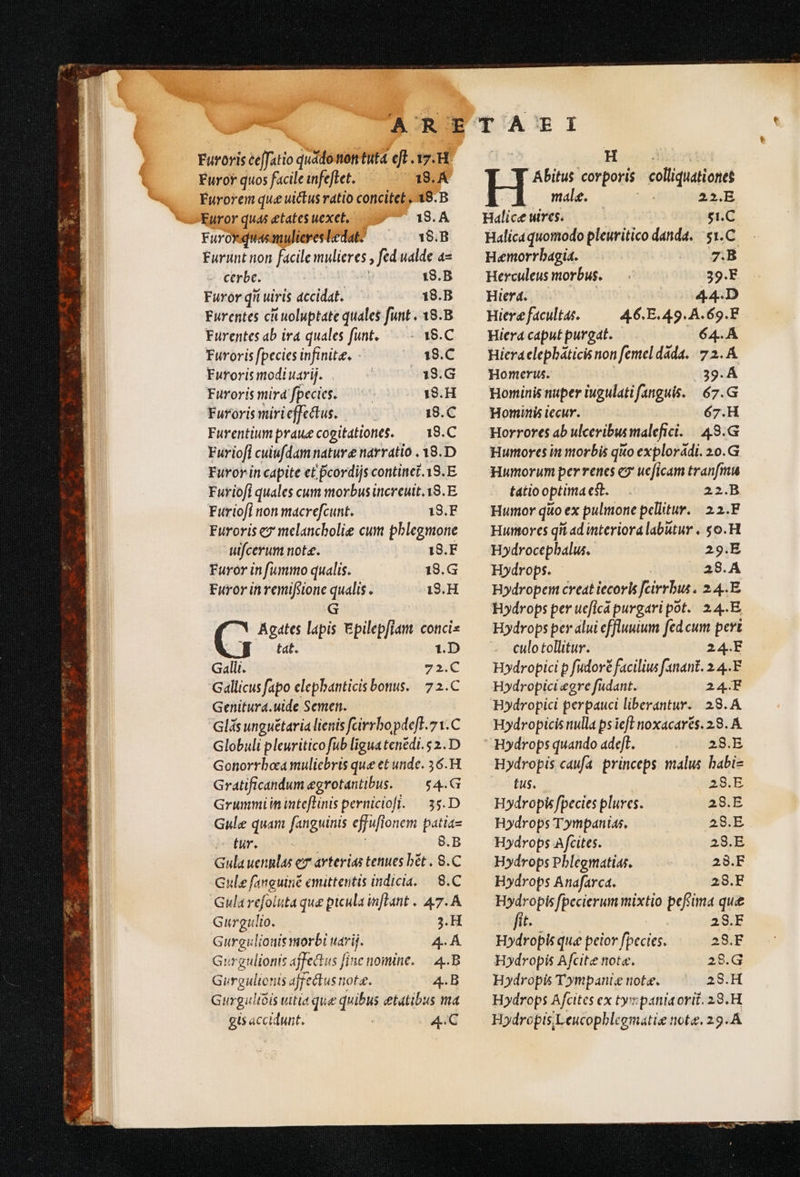 ARETAEI
Furoris ceſſatio quãdo non tuta eſt .17.H
Furor quos facile infeſtet. 18.A
Furorem que uictus ratio concitet .18.B
Furor quas ætates uexet. 18.A
Furor quas mulieres lædat. 18.B
Furunt non facile mulieres , ſed ualde a=
cerbe. 18.B
Furor qñ uiris accidat. 18.B
Furentes cũ uoluptate quales ſunt . 18.B
Furentes ab ira quales ſunt. 18.C
Furoris ſpecies infinitæ. 18.C
Furoris modi uarij. 18.G
Furoris mira ſpecies. 18.H
Furoris miri effectus. 18.C
Furentium praue cogitationes. 18.C
Furioſi cuiuſdam nature narratio .18.D
Furor in capite et p̃cordijs continet̃.18.E
Furioſi quales cum morbus increuit.18.E
Furioſi non macreſcunt. 18.F
Furoris et melancholiæ cum phlegmone
uiſcerum notæ. 18.F
Furor in ſummo qualis. 18.G
Furor in remiſſione qualis . 18.H
G
GAgates lapis Epilepſiam conci=
tat. 1.D
Galli. 72.C
Gallicus ſapo elephanticis bonus. 72.C
Genitura.uide Semen.
Glãs unguẽtaria lienis ſcirrho pdeſt.71.C
Globuli pleuritico ſub ligua tenẽdi.52.D
Gonorrhœa muliebris que et unde. 36.H
Gratificandum ægrotantibus. 54.G
Grummi in inteſtinis pernicioſi. 35.D
Gulæ quam ſanguinis effuſionem patia=
tur. 8.B
Gula uenulas et arterias tenues hẽt . 8.C
Gulæ ſanguinẽ emittentis indicia. 8.C
Gula reſoluta que picula inſtant . 47.A
Gurgulio. 3.H
Gurgulionis morbi uarij. 4.A
Gurgulionis affectus ſine nomine. 4.B
Gurgulionis affectus notæ. 4.B
Gurguliõis uitia que quibus ætatibus ma
gis accidunt. 4.C
H
HAbitus corporis colliquationes
malæ. 22.E
Halicæ uires. 51.C
Halica quomodo pleuritico danda. 51.C
Hæmorrhagia. 7.B
Herculeus morbus. 39.F
Hiera. 44.D
Hieræ facultas. 46.E.49.A.69.F
Hiera caput purgat. 64.A
Hiera elephãticis non ſemel dãda. 72.A
Homerus. 39.A
Hominis nuper iugulati ſanguis. 67.G
Hominis iecur. 67.H
Horrores ab ulceribus malefici. 48.G
Humores in morbis quo explorãdi. 20.G
Humorum per renes et ueſicam tranſmu
tatio optima eſt. 22.B
Humor quo ex pulmone pellitur. 22.F
Humores qñ ad interiora labũtur . 50.H
Hydrocephalus. 29.E
Hydrops. 28.A
Hydropem creat iecoris ſcirrhus . 24.E
Hydrops per ueſicã purgari põt. 24.E
Hydrops per alui effluuium ſed cum peri
culo tollitur. 24.F
Hydropici p ſudorẽ facilius ſanant̃. 24.F
Hydropici ægre ſudant. 24.F
Hydropici perpauci liberantur. 28.A
Hydropicis nulla ps ieſt noxa carẽs. 28.A
Hydrops quando adeſt. 28.E
Hydropis cauſa princeps malus habi=
tus. 28.E
Hydropis ſpecies plures. 28.E
Hydrops Tympanias. 28.E
Hydrops Aſcites. 28.E
Hydrops Phlegmatias. 28.F
Hydrops Anaſarca. 28.F
Hydropis ſpecierum mixtio peſſima quæ
fit. 28.F
Hydropis quæ peior ſpecies. 28.F
Hydropis Aſcitæ notæ. 28.G
Hydropis Tympaniæ notæ. 28.H
Hydrops Aſcites ex tympania orit̃. 28.H
Hydropis Leucophlegmatiæ notæ. 29.A